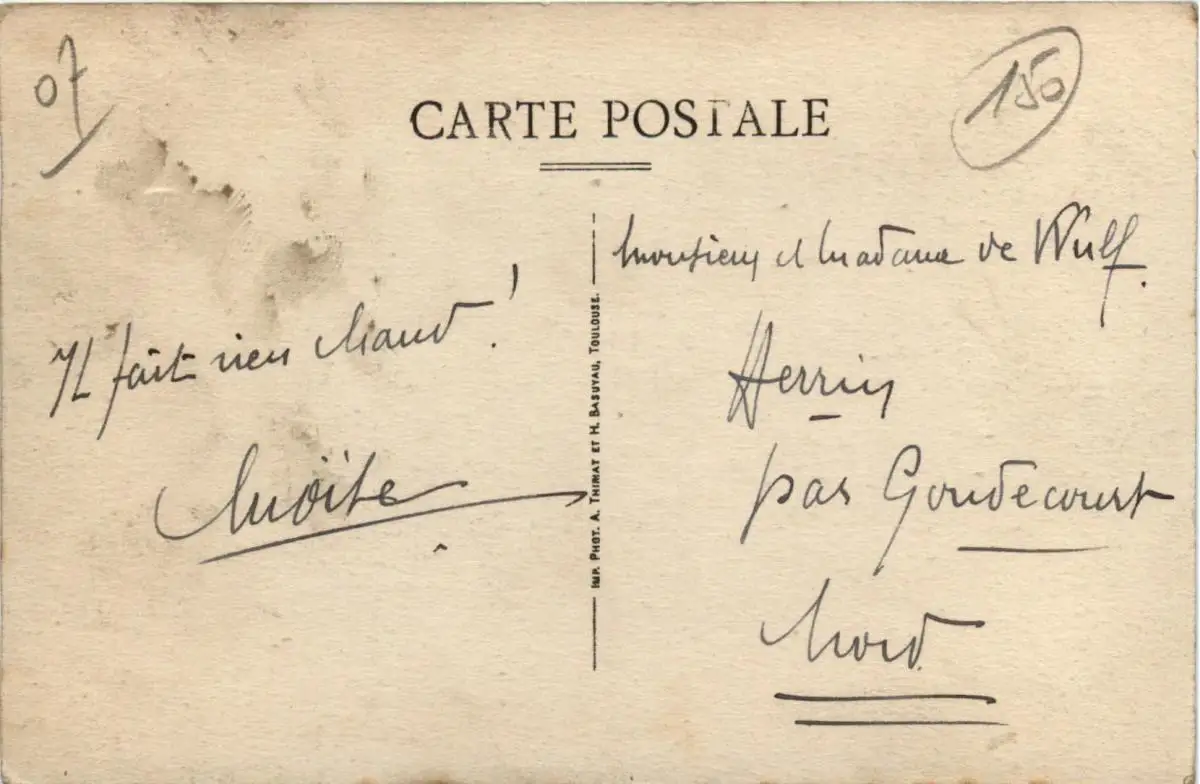 07
150
CARTE POSTALE
Il fait rien chaud !
IMP. PHOT. A. THIRIAT ET H. BASUYAU, TOULOUSE.
Monsieur et Madame de Wulf.
Herrin
par Gondecourt
Nord